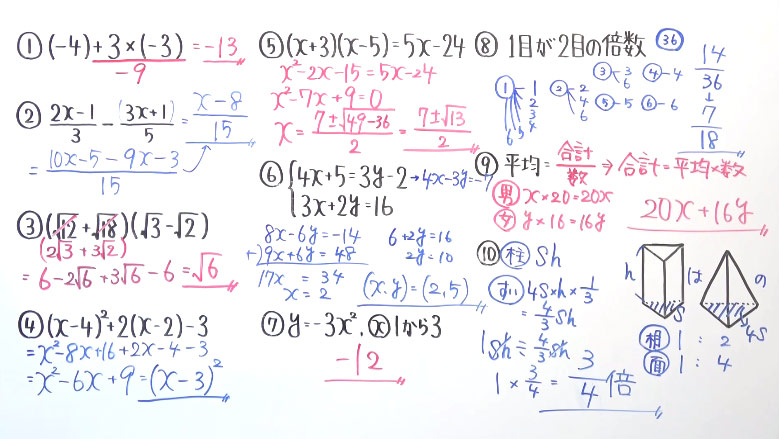 ① (-4)+3×(-3) = -13
-9
② 2x-1/3 - (3x+1)/5 = x-8/15
= 10x-5-9x-3/15
③ (√12+√18)(√3-√2)
(2√3+3√2)
= 6-2√6+3√6-6=√6
④ (x-4)²+2(x-2)-3
=x²-8x+16+2x-4-3
=x²-6x+9=(x-3)²
⑤ (x+3)(x-5)=5x-24
x²-2x-15=5x-24
x²-7x+9=0
x= 7±√49-36/2 = 7±√13/2
⑥ {4x+5=3y-2→4x-3y=-7
3x+2y=16
8x-6y=-14
+)9x+6y=48
17x = 34
x=2
6+2y=16
2y=10
(x.y)=(2,5)
⑦ y=-3x², ⓧ1から3
-12
⑧ 1目が2目の倍数 ㊱
①-1
2
3
4
5
6
②-2
4
6
③-3
6
④-4
⑤-5 ⑥-6
14/36
↓
7/18
⑨ 平均=合計/数 ⇒ 合計=平均×数
男 x×20=20x
女 y×16=16y
20x+16y
⑩ 柱 Sh
すい 4S×h×1/3
=4/3Sh
1Sh÷4/3Sh
1×3/4=3/4倍
h
S
は
4S
の
相 1:2
面 1:4